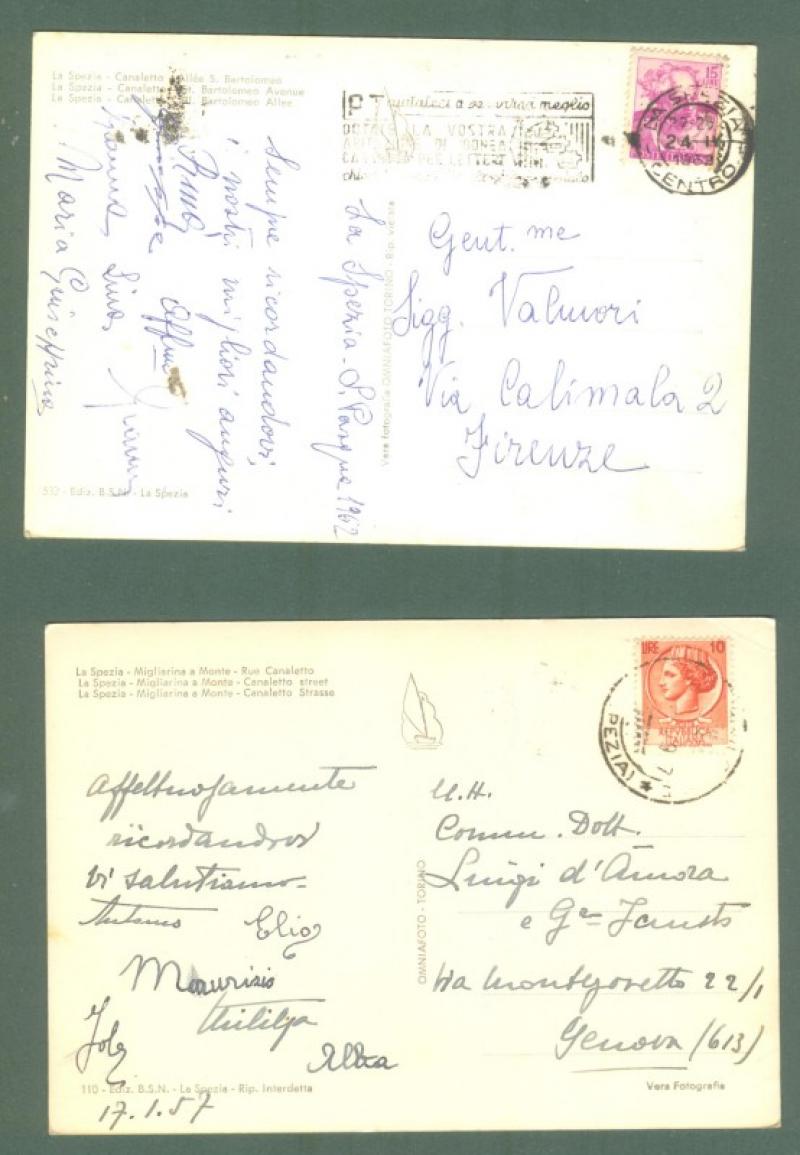 La Spezia - Canaletto - Allée S. Bartolomeo
La Spezia - Canaletto - St. Bartolomeo Avenue
La Spezia - Canaletto - St. Bartolomeo Allee
Sempre ricordandovi,
i nostri migliori auguri
Affmi
Lina,
Maria Giuseppina
532 - Ediz. B.S.N. - La Spezia
La Spezia - S. Pasqua 1962
Vera Fotografia OMNIAFOTO TORINO - Rip. vietata
PT aiutateci a servirvi meglio
DOTATE LA VOSTRA
ABITAZIONE DI IDONEA
CASSETTA PER LETTERE
15
LIRE
22-23
24 IV
1962
CENTRO
Gent.me
Sigg. Valmori
Via Calimala 2
Firenze
La Spezia - Migliarina a Monte - Rue Canaletto
La Spezia - Migliarina a Monte - Canaletto street
La Spezia - Migliarina a Monte - Canaletto Strasse
Affettuosamente
ricordandovi
vi salutiamo
Antonio Elio
Maurizio
Alba
110 - Ediz. B.S.N. - La Spezia - Rip. Interdetta
17.1.57
OMNIAFOTO - TORINO
LIRE 10
REPVBBLICA
ITALIANA
PEZIA)
N.H.
Comm. Dott.
Luigi d'Amora
e Gr. Fausto
Via Montezovetto 22/1
Genova (613)
Vera Fotografia